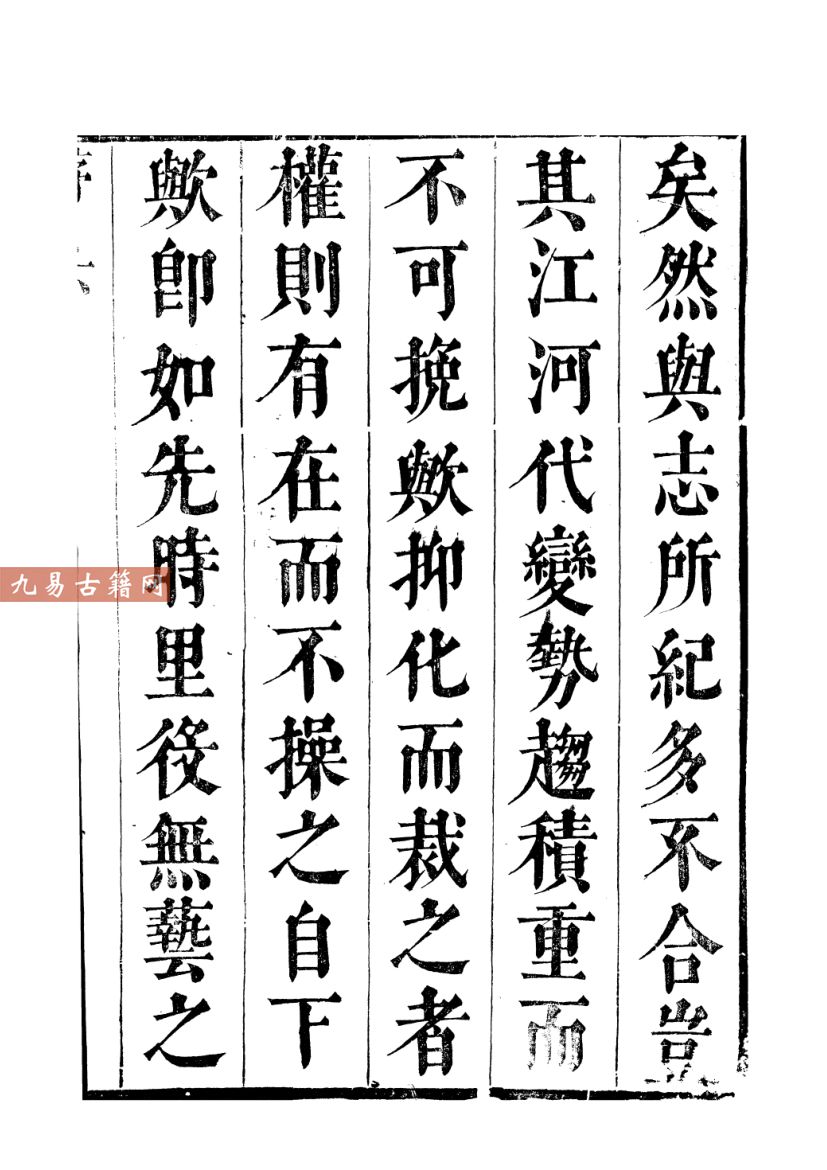 矣然與志所紀多不合豈
其江河代變勢趨積重而
不可挽歟抑化而裁之者
權則有在而不操之自下
歟卽如先時里役無藝之
九易古籍网